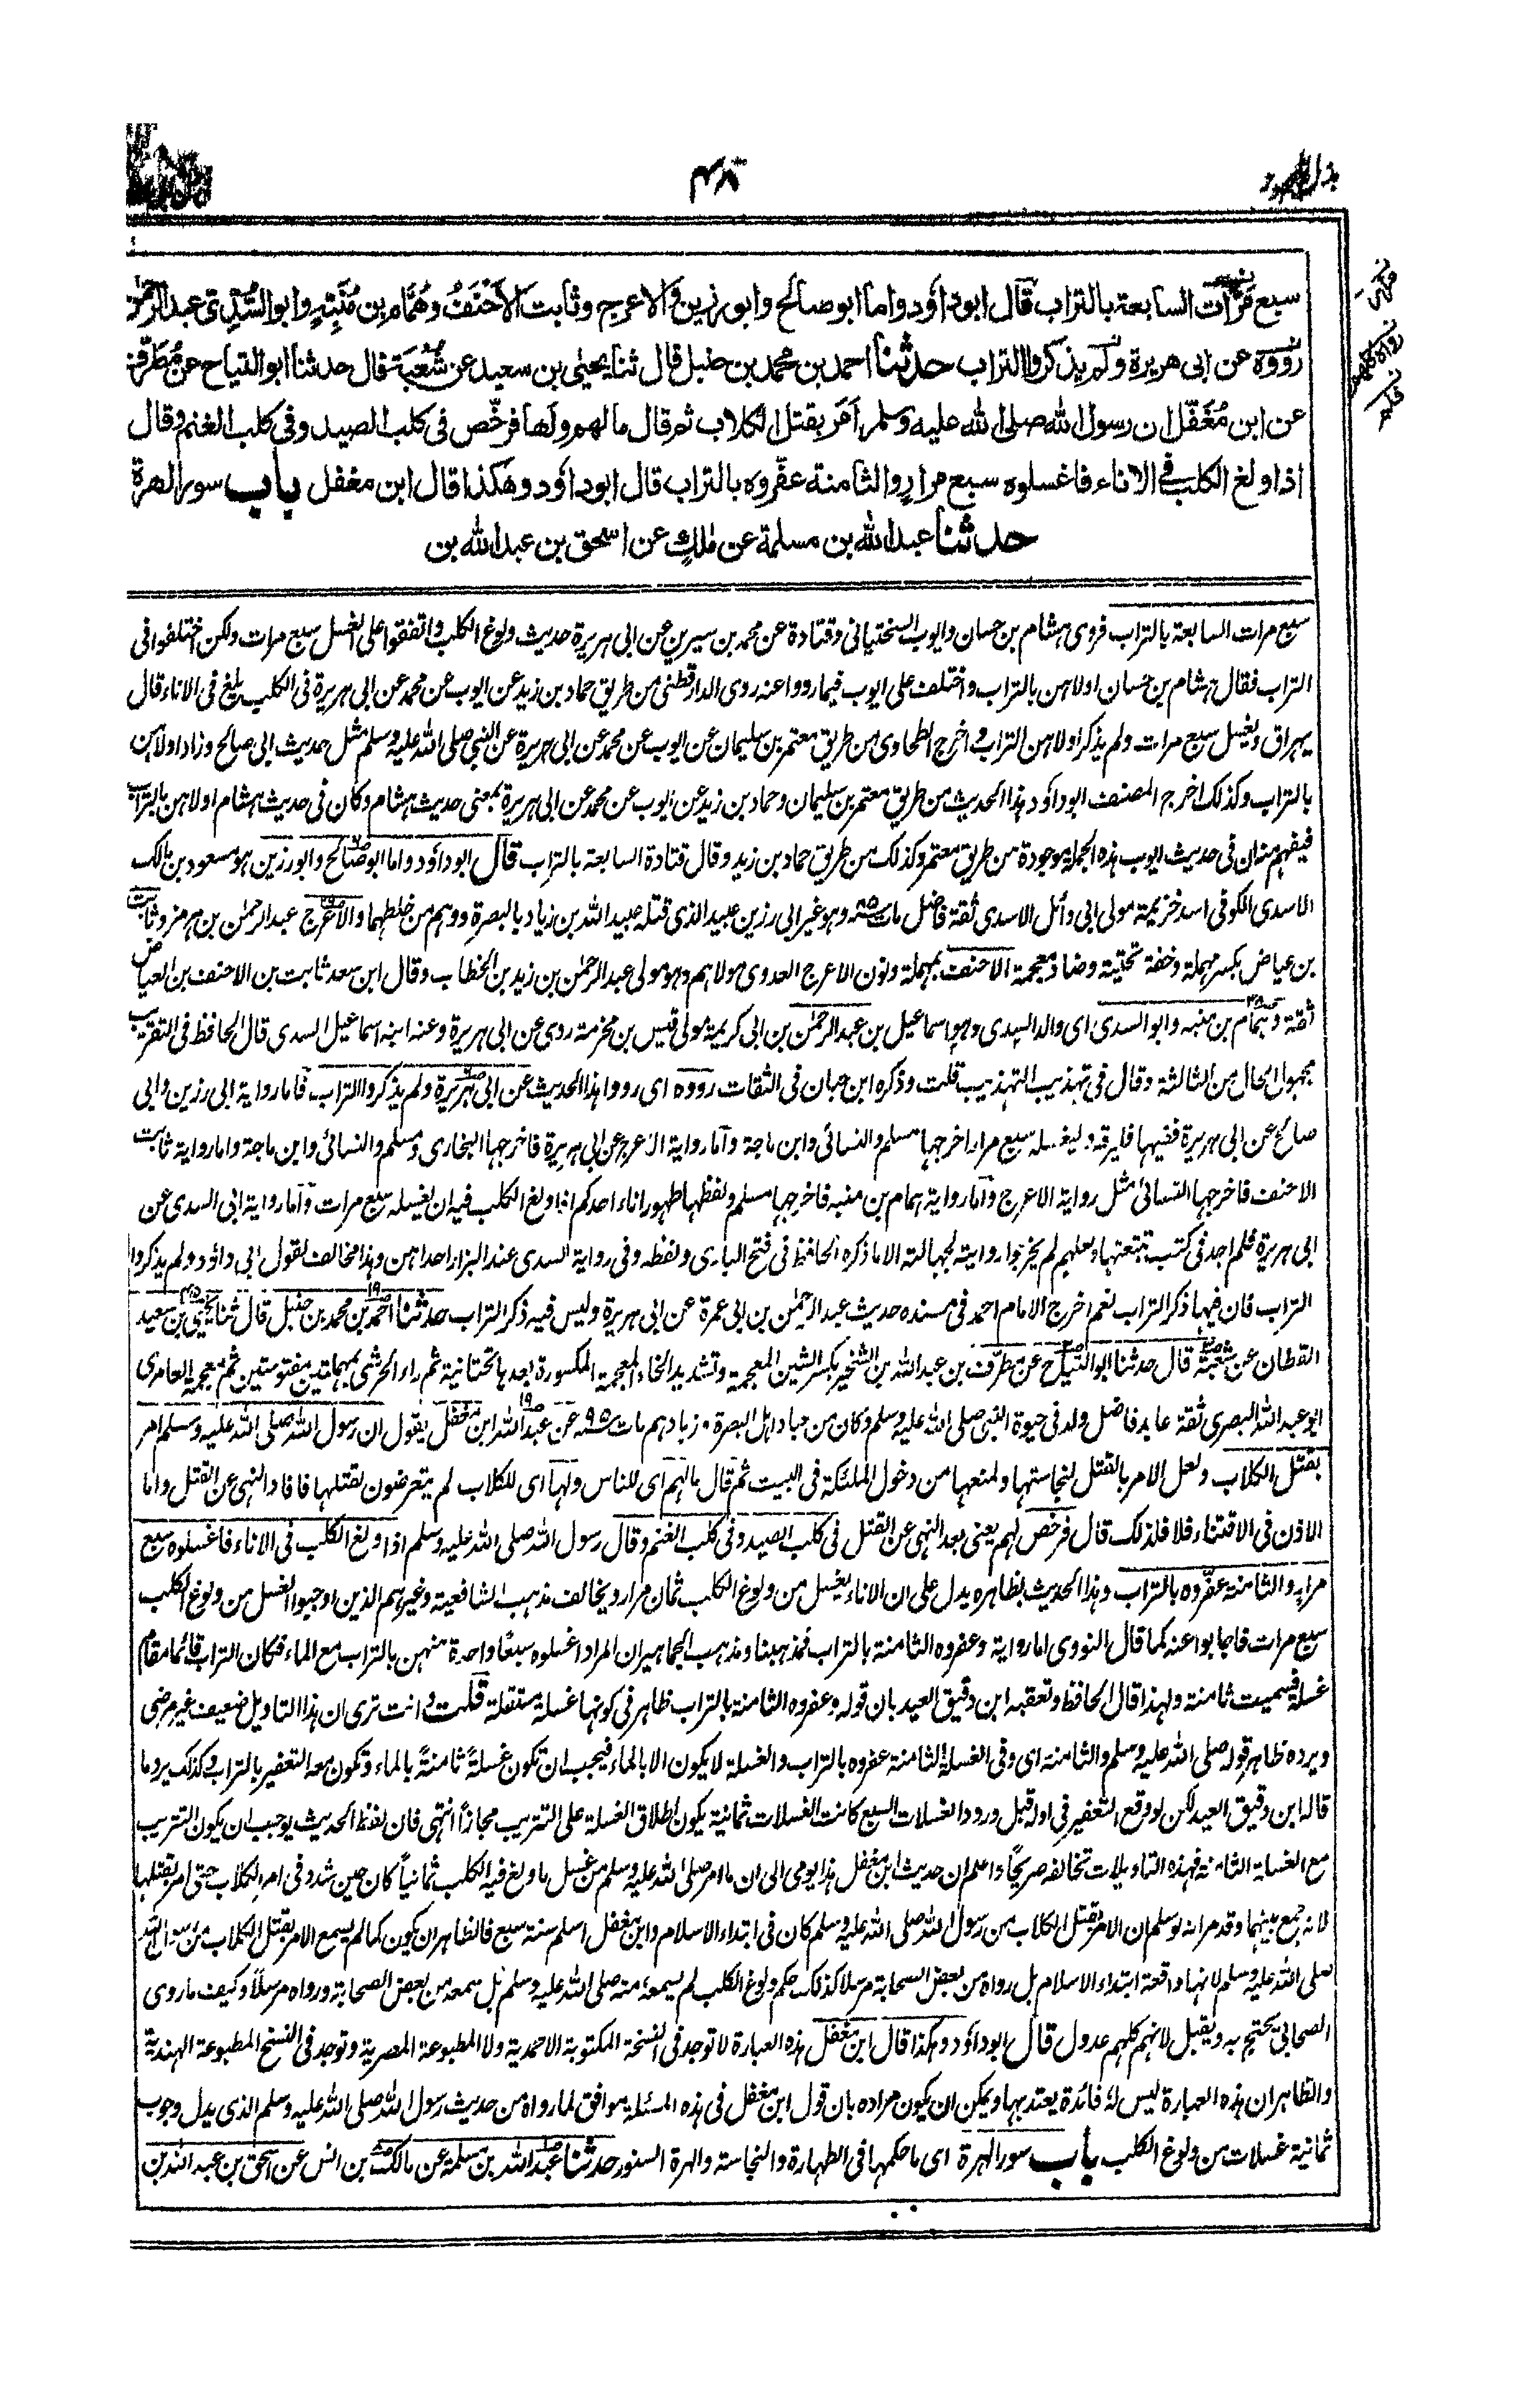 بذل المجهود
سبع مرات السابعة بالتراب قال ابو داؤد واما ابو صالح وابو رزين والاعرج وثابت الاحنف وهمام بن منبه وابو السدى عبد الرحمن
رووه عن ابى هريرة ولم يذكروا التراب حدثنا احمد بن محمد بن حنبل قال ثنا يحيى بن سعيد عن شعبة قال حدثنا ابو التياح عن مطرف
عن ابن مغفل ان رسول الله صلى الله عليه وسلم امر بقتل الكلاب ثم قال مالهم ولها فرخص فى كلب الصيد وفى كلب الغنم وقال
اذا ولغ الكلب فى الاناء فاغسلوه سبع مرار والثامنة عفروه بالتراب قال ابو داؤد وهكذا قال ابن مغفل باب سور الهرة
حدثنا عبد الله بن مسلمة عن ملك عن اسحق بن عبد الله بن
سبع مرات السابعة بالتراب فروى هشام بن حسان وايوب السختيانى وقتادة عن محمد بن سيرين عن ابى هريرة حديث ولوغ الكلب واتفقوا على الغسل سبع مرات ولكن اختلفوا فى
التراب فقال هشام بن حسان اولاهن بالتراب واختلف على ايوب فيما رووا عنه روى الدارقطنى من طريق حماد بن زيد عن ايوب عن محمد عن ابى هريرة فى الكلب يلغ فى الاناء قال
يهراق ويغسل سبع مرات ولم يذكر اولاهن التراب واخرج الطحاوى من طريق معتمر بن سليمان عن ايوب عن محمد عن ابى هريرة عن النبى صلى الله عليه وسلم مثل حديث ابى صالح وزاد اولاهن
بالتراب وكذلك اخرج المصنف ابو داؤد هذا الحديث من طريق معتمر بن سليمان وحماد بن زيد عن ايوب عن محمد عن ابى هريرة بمعنى حديث هشام وكان فى حديث هشام اولاهن بالتراب
فيفهم منه ان فى حديث ايوب هذه الجملة موجودة من طريق معتمر وكذلك من طريق حماد بن زيد وقال قتادة السابعة بالتراب قال ابو داؤد واما ابو صالح وابو رزين هو مسعود بن مالك
الاسدى الكوفى اسد خزيمة مولى ابى وائل الاسدى ثقة فاضل مات سنة ٨٥ وهو غير ابى رزين عبيد الذى قتله عبيد الله بن زياد بالبصرة ووهم من خلطهما والاعرج عبد الرحمن بن هرمز وثابت
بن عياض بكسر مهملة وخفة تحتية وضاد معجمة الاحنف بمهملة ونون الاعرج العدوى مولاهم وهو مولى عبد الرحمن بن زيد بن الخطاب وقال ابن سعد ثابت بن الاحنف بن العياض
ثقة وهمام بن منبه وابو السدى اى والد السدى وهو اسماعيل بن عبد الرحمن بن ابى كريمة مولى قيس بن مخرمة روى عن ابى هريرة وعنه ابنه اسماعيل السدى قال الحافظ فى التقريب
مجهول الحال من الثالثة وقال فى تهذيب التهذيب قلت وذكره ابن حبان فى الثقات رووه اى رووا هذا الحديث عن ابى هريرة ولم يذكروا التراب فاما رواية ابى رزين وابى
صالح عن ابى هريرة ففيها فليرقه وليغسله سبع مرار اخرجها مسلم والنسائى وابن ماجة واما رواية الاعرج عن ابى هريرة فاخرجها البخارى ومسلم والنسائى وابن ماجة واما رواية ثابت
الاحنف فاخرجها النسائى مثل رواية الاعرج واما رواية همام بن منبه فاخرجها مسلم ولفظها طهور اناء احدكم اذا ولغ الكلب فيه ان يغسله سبع مرات واما رواية ابى السدى عن
ابى هريرة فلم اجد فى كتب تتبعتها ولعلهم لم يخرجوا روايته لجهالته الا ما ذكره الحافظ فى فتح البارى ولفظه وفى رواية السدى عند البزار احداهن وهذا مخالف لقول ابى داؤد ولم يذكروا
التراب فان فيها ذكر التراب نعم اخرج الامام احمد فى مسنده حديث عبد الرحمن بن ابى عمرة عن ابى هريرة وليس فيه ذكر التراب حدثنا احمد بن محمد بن حنبل قال ثنا يحيى بن سعيد
القطان عن شعبة قال حدثنا ابو التياح عن مطرف بن عبد الله بن الشخير بكسر الشين المعجمة وتشديد الخاء المعجمة المكسورة بعدها تحتانية ثم راء الحرشى بمهملتين مفتوحتين ثم معجمة العامرى
ابو عبد الله البصرى ثقة عابد فاضل ولد فى حيوة النبى صلى الله عليه وسلم وكان من عباد اهل البصرة وزهادهم مات سنة ٩٥ عن عبد الله ابن مغفل يقول ان رسول الله صلى الله عليه وسلم امر
بقتل الكلاب ولعل الامر بالقتل لنجاستها ولمنعها من دخول الملئكة فى البيت ثم قال مالهم اى للناس ولها اى للكلاب لم يتعرضون لقتلها فافاد النهى عن القتل واما
الاذن فى الاقتناء فلا فلذلك قال فرخص لهم يعنى بعد النهى عن القتل فى كلب الصيد وفى كلب الغنم وقال رسول الله صلى الله عليه وسلم اذا ولغ الكلب فى الاناء فاغسلوه سبع
مرار والثامنة عفروه بالتراب وهذا الحديث بظاهره يدل على ان الاناء يغسل من ولوغ الكلب ثمان مرار ويخالف مذهب الشافعية وغيرهم الذين اوجبوا الغسل من ولوغ الكلب
سبع مرات فاجابوا عنه كما قال النووى اما رواية وعفروه الثامنة بالتراب فمذهبنا ومذهب الجماهير ان المراد اغسلوه سبعا واحدة منهن بالتراب مع الماء فكان التراب قائما مقام
غسلة فسميت ثامنة ولهذا قال الحافظ وتعقبه ابن دقيق العيد بان قوله وعفروه الثامنة بالتراب ظاهر فى كونها غسلة مستقلة قلت وانت ترى ان هذا التاويل ضعيف غير مرضى
ويرده ظاهر قوله صلى الله عليه وسلم والثامنة اى وفى الغسلة الثامنة عفروه بالتراب والغسلة لا يكون الا بالماء فيجب ان تكون غسلة ثامنة بالماء وتكون معه التعفير بالتراب وكذلك يرد ما
قاله ابن دقيق العيد لكن لو وقع التعفير فى اوله قبل ورود الغسلات السبع كانت الغسلات ثمانية يكون اطلاق الغسلة على التتريب مجازا انتهى فان لفظ الحديث يوجب ان يكون التتريب
مع الغسلة الثامنة فهذه التاويلات تخالفه صريحا واعلم ان حديث ابن مغفل هذا يومى الى ان ما امر صلى الله عليه وسلم من غسل ما ولغ فيه الكلب ثمانيا كان حين شدد فى امر الكلاب حتى امر بقتلها
لانه جمع بينهما وقد مر انه لو سلم ان الامر بقتل الكلاب من رسول الله صلى الله عليه وسلم كان فى ابتداء الاسلام وابن مغفل اسلم سنة سبع فالظاهر ان يكون كما لم يسمع الامر بقتل الكلاب من رسول الله
صلى الله عليه وسلم لانها واقعة ابتداء الاسلام بل رواه من بعض الصحابة مرسلا كذلك حكم ولوغ الكلب لم يسمعه منه صلى الله عليه وسلم بل سمعه من بعض الصحابة ورواه مرسلا وكيف ما روى
الصحابى يحتج به ويقبل لانهم كلهم عدول قال ابو داؤد وهكذا قال ابن مغفل هذه العبارة لا توجد فى النسخة المكتوبة الاحمدية ولا المطبوعة المصرية وتوجد فى النسخ المطبوعة الهندية
والظاهر ان هذه العبارة ليس له فائدة يعتد بها ويمكن ان يكون مراده بان قول ابن مغفل فى هذه المسئلة موافق لما رواه من حديث رسول الله صلى الله عليه وسلم الذى يدل وجوب
ثمانية غسلات من ولوغ الكلب باب سور الهرة اى ما حكمها فى الطهارة والنجاسة والهرة السنور حدثنا عبد الله بن مسلمة عن مالك بن انس عن اسحق بن عبد الله بن